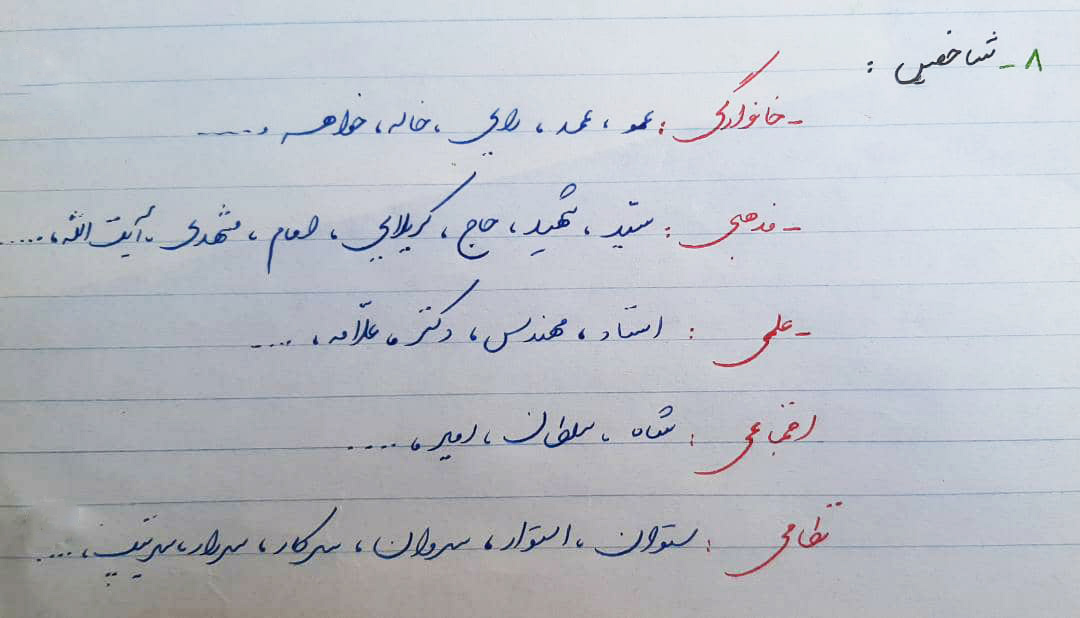 ۸ - شاخص :
- خانوادگی : عمو ، عمه ، دایی ، خاله ، خواهر و ....
- مذهبی : سیّد ، شهید ، حاج ، کربلایی ، امام ، مشهدی ، آیت الله ، ....
- علمی : استاد ، مهندس ، دکتر ، علّامه ، ....
اجتماعی : شاه ، سلطان ، امیر ، ....
نظامی : ستوان ، استوار ، سروان ، سرکار ، سردار ، سرتیپ ، ....